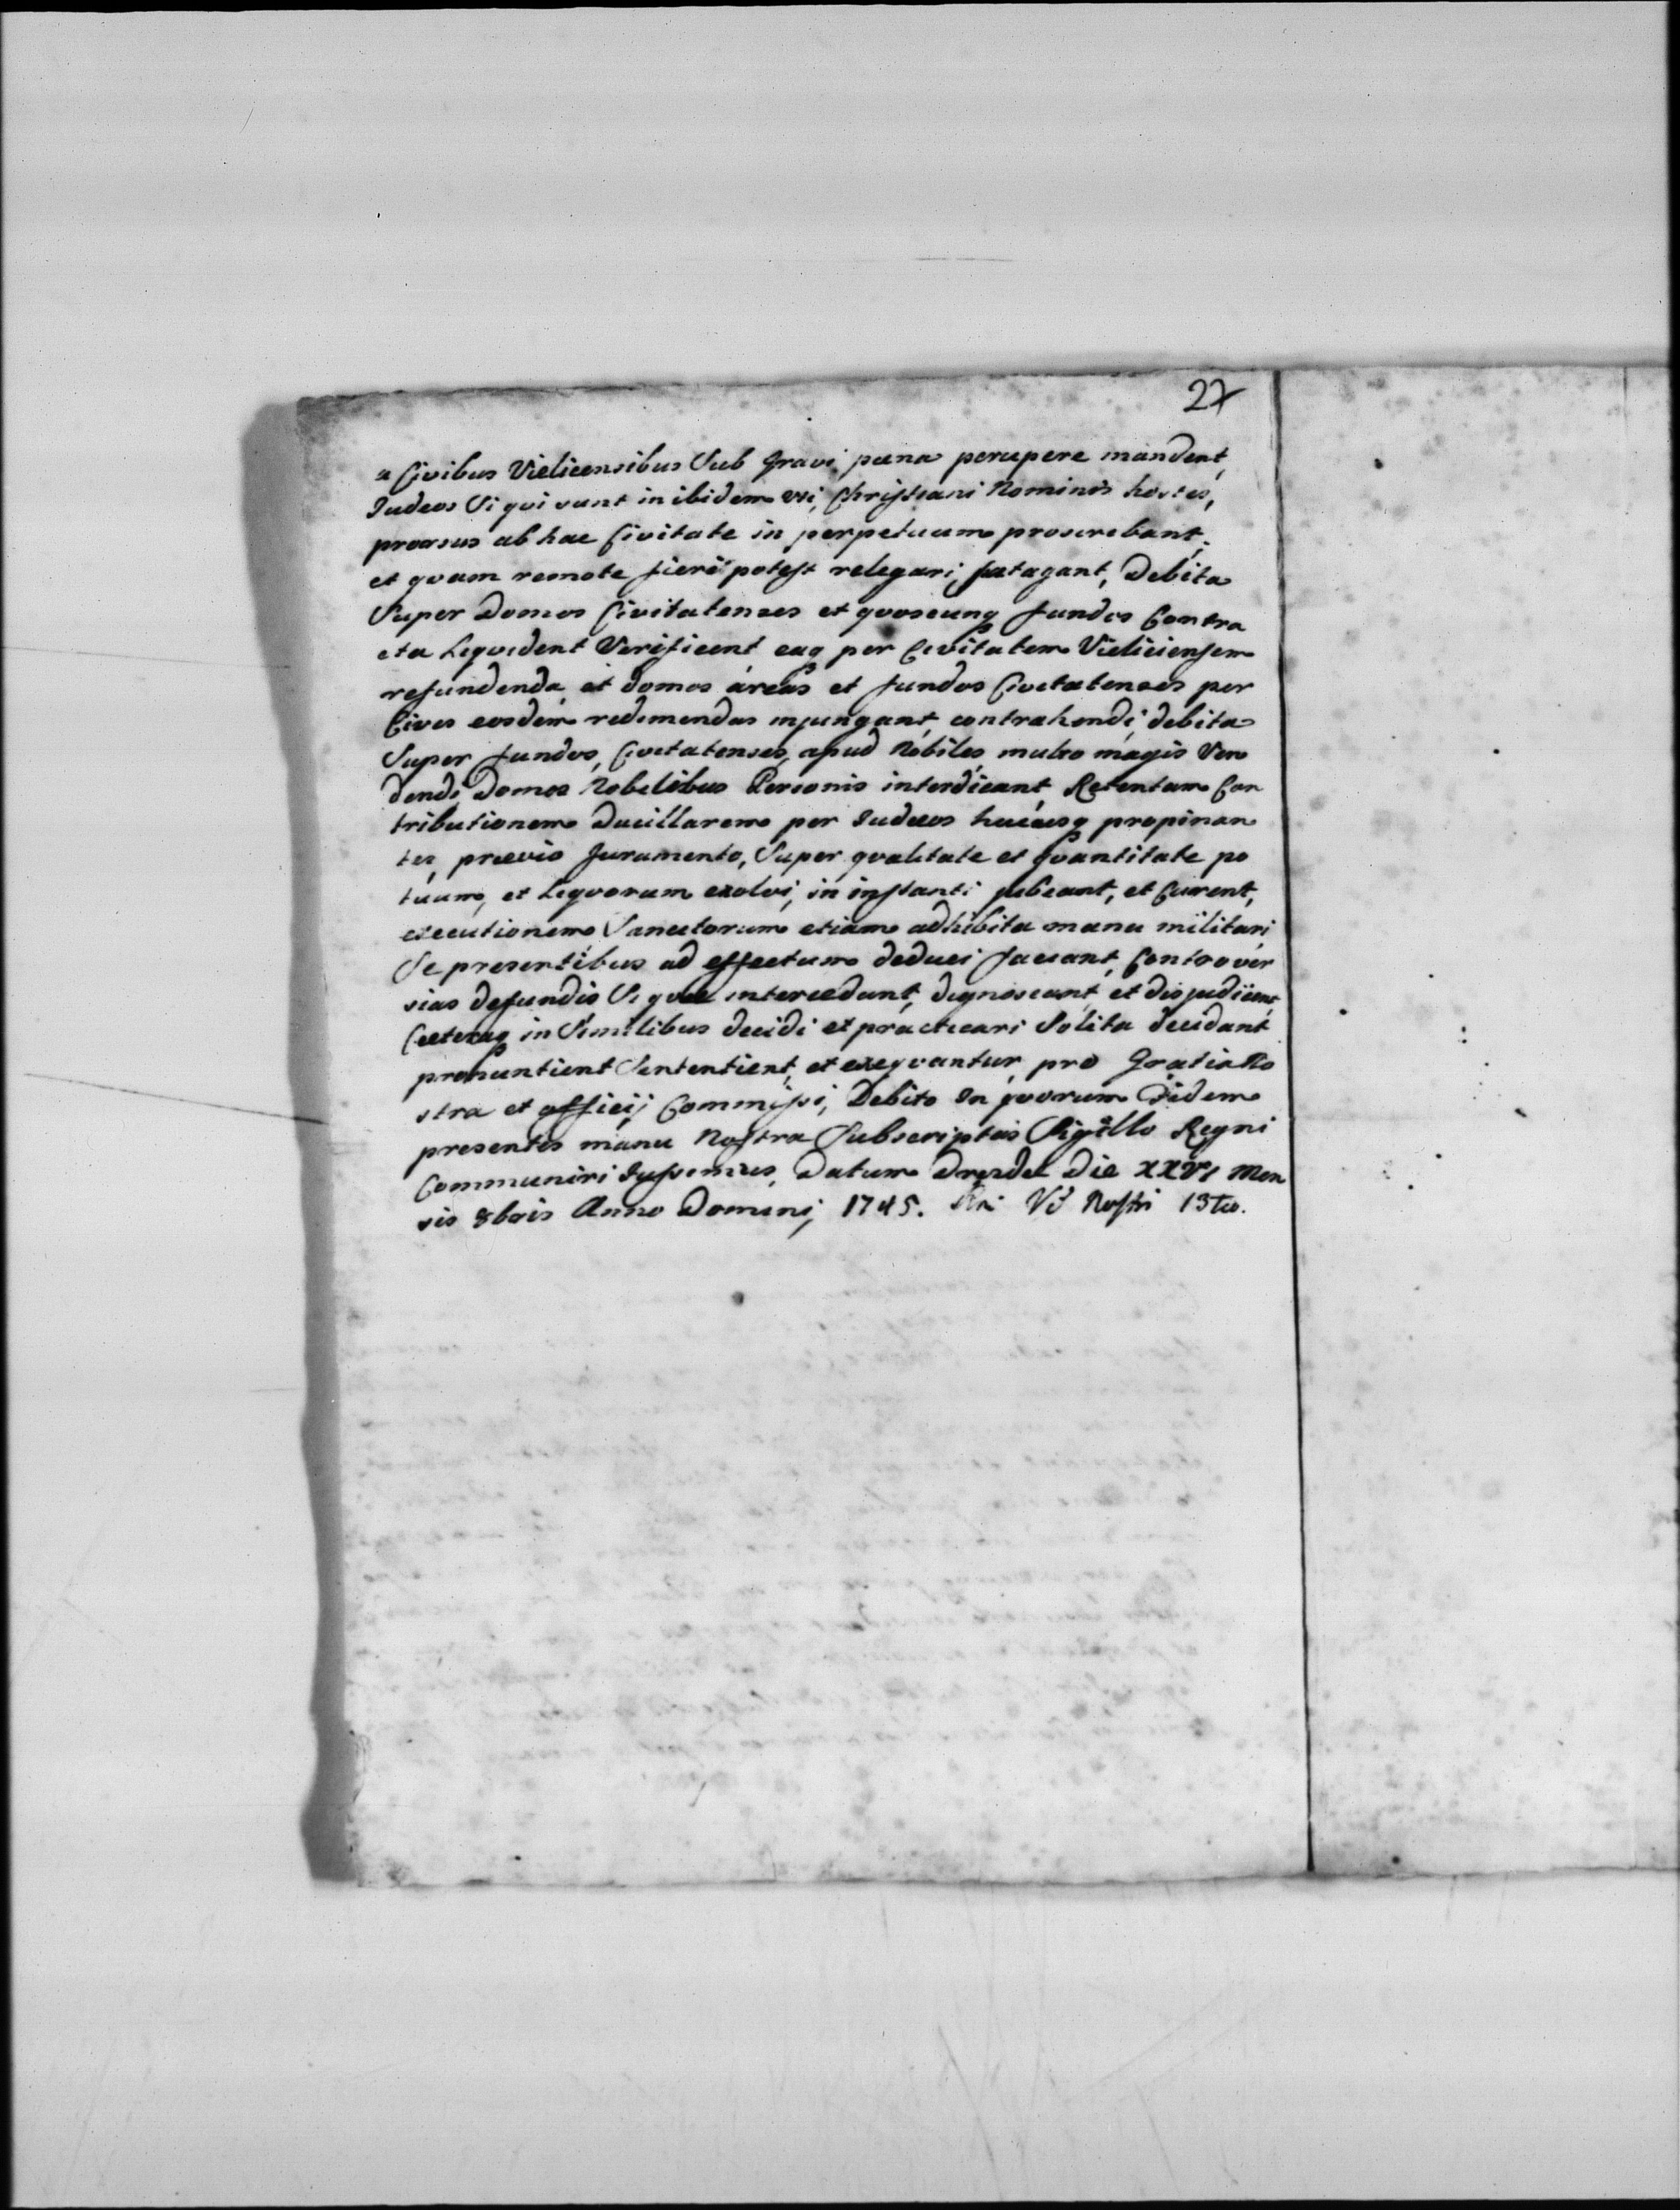 27
a Civibus Vieliciensibus Sub Gravi pæna percipere mandent,
Iudeos Si qui sunt in ibidem Christiani Nominis hostes,
prorsus ab hac Civitate in perpetuum proscribant,
et quam remote fieri potest relegari, satagant, Debita
Super Domos Civitatenses et quoscunq fundos Contra
cta Liquident Verificent eaq per Civitatem Vieliciensem
refundenda, et domos áreas et fundos Civitatenses per
Cives eosdem redimendas injungant, contrahendi debita
Super fundos, Civitatenses, apud Nobiles, multo magis Ven
dendi Domos Nobilibus Personis interdicant, Retentam Con
tributionem Ducillarem per Iudæos hucusq propinan
tes, prævio Juramento, Super qualitate et quantitate po
tuum, et Liquorum exolvi, in instanti jubeant, et Curent,
executionem Sancitorum etiam adhibita manu militari
Se presentibus ad effectum deduci faciant, Controver
sias defundis Si quæ intercedunt, dignoscant, et disjudicent,
Cæteraq in Similibus decidi et practicari Solita decidant
pronuntient Sententient, et exequantur, pro Gratia No
stra et officij Commissi, Debito In quorum Fidem
presentes manu Nostra Subscriptas Sigillo Regni
Communiri Iussimus, Datum Dresdæ Die XXVI Men
sis 8bris Anno Domini, 1745. Nostri 13tio.